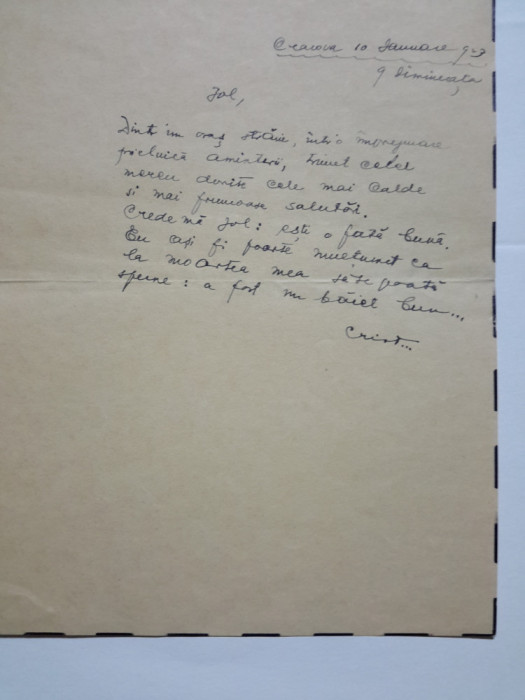 Craiova 10 Ianuarie
9 dimineața
Jol,
Dintr'un oraș străin, într'o
amintiră, trimet celei
mereu dorite cele mai calde
și mai frumoase salutări.
Crede mă Jol: ești o fată bună.
Eu ași fi foarte mulțumit ca
la moartea mea să se poată
spune: a fost un băiet bun...
Crist...